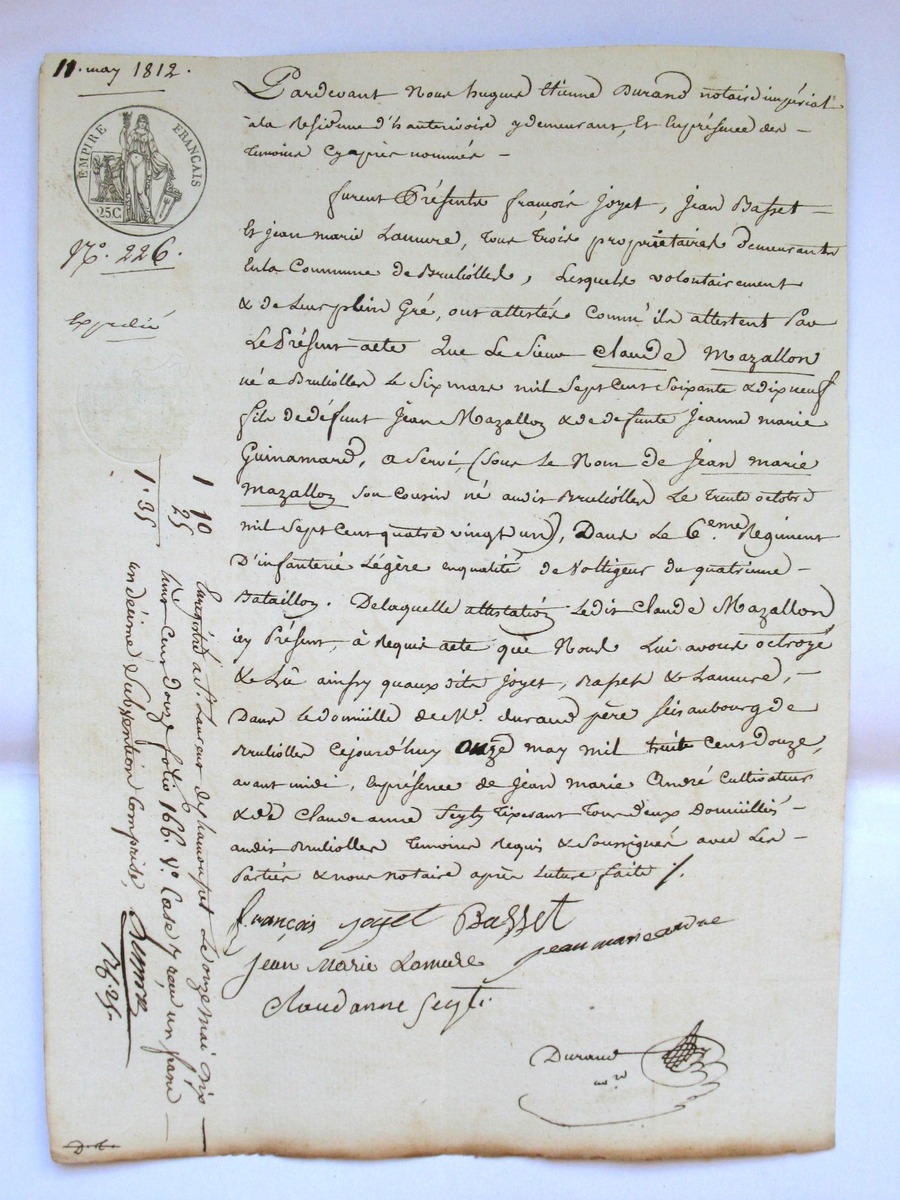 11. may 1812.
EMPIRE FRANÇAIS
25C
N.º 226.
Expedié
Pardevant Nous hugues Etienne Durand notaire impérial
a la Residence d'hauterivoire y demeurant, Et En présence des
temoins Cy après nommés
furent Présents françois Joyet, Jean Basset
Et jean marie Lamure, tous trois propriétaires demeurants
En la Commune de Brulioller, Lesquels volontairement
& de Leur plein Gré, ont attestés Comm'ils attestent Par
Le Présent acte Que Le Sieur Claude Mazallon
né a Brulioller le Six mars mil Sept Cent Soixante & dix neuf
fils de défunt Jean Mazallon & de defunte Jeanne marie
Guinamard, a Servi, (Sous Le Nom de Jean marie
Mazallon Son Cousin né audit Brulioller Le trente octobre
mil Sept Cent quatre vingt un), Dans Le 6.eme Regiment
D'infanterie Légère en qualité de Voltigeur du quatrieme
Bataillon. De laquelle attestation Ledit Claude Mazallon
icy Présent, à Requis acte que Nous Lui avons octroyé
& Lû ainsy qu'aux dits Joyet, Basset & Lamure,
Dans le domicille de Mr. durand père Sis au bourg de
Brulioller Cejourd'huy onze may mil huit Cent Douze,
avant midi, En présence de Jean marie André Cultivateur
& de Claude anne Seyty tixerant Tous deux Domicilliés
audit Brulioller temoins Requis & Soussignés avec Les
Parties & nous notaire après Lecture faite /.
françois joyet Basset
jean marie andre
jean Marie Lamure
Claud anne Seyti.
Durand
no.re
Enregistré a St Laurent de chamousset Le onze mai dix
huit Cent douze folio 166. V.º Case 7 reçu un franc
un décime & Subvention Comprise,
1
10
25
1.35